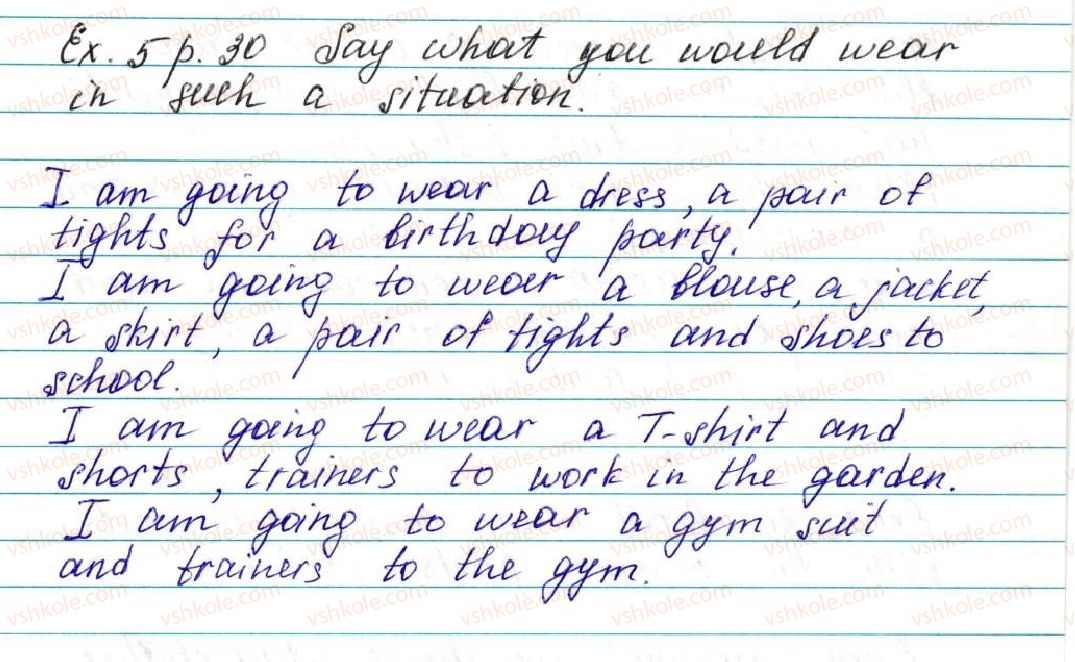 Ex. 5 p. 30 Say what you would wear
in such a situation.
I am going to wear a dress, a pair of
tights for a birthday party.
I am going to wear a blouse, a jacket,
a skirt, a pair of tights and shoes to
school.
I am going to wear a T-shirt and
shorts, trainers to work in the garden.
I am going to wear a gym suit
and trainers to the gym.